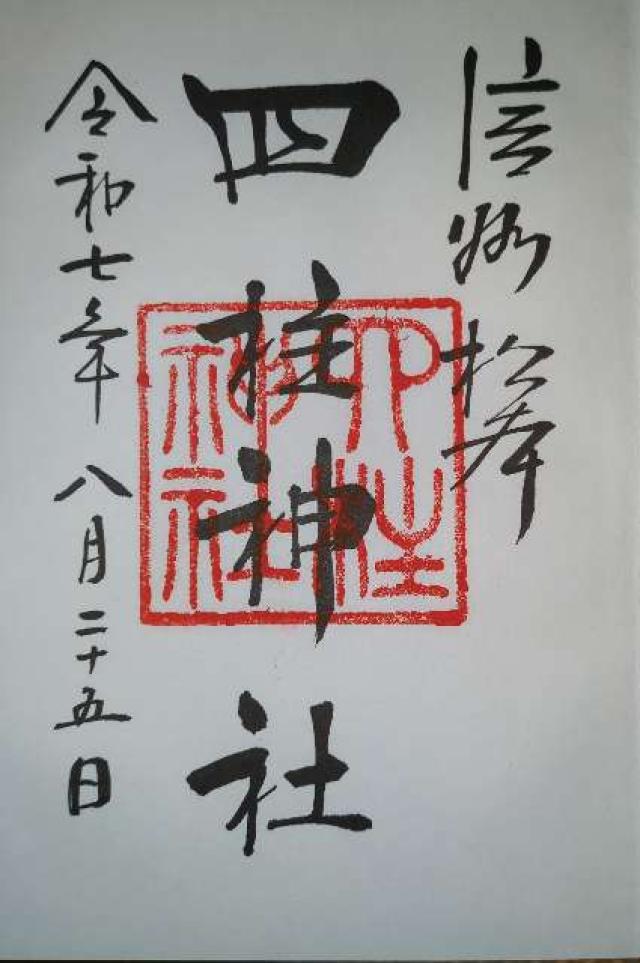 信州 松本
四柱神社
令和七年 八月二十五日
四柱神社